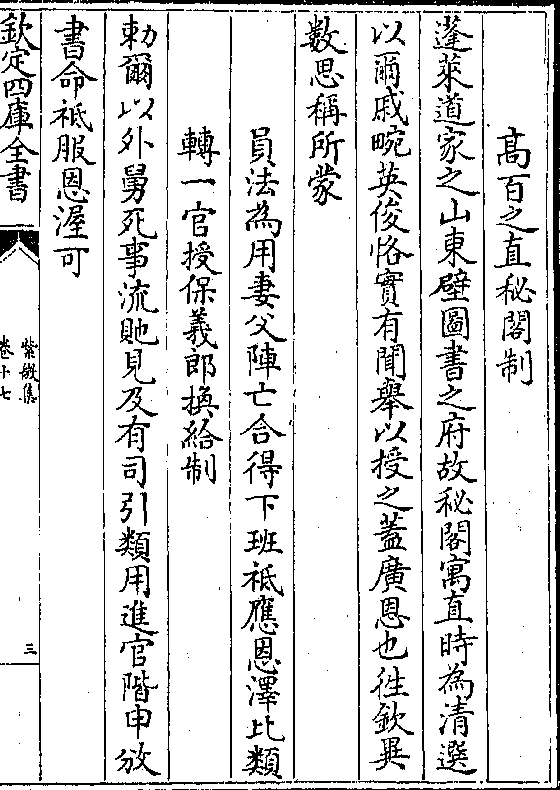 髙百之直秘閣制
蓬萊道家之山東壁圖書之府故秘閣寓直時為清選
以爾戚畹英俊恪實有聞舉以授之葢廣恩也徃欽異
數思稱所蒙
員法為用妻父陣亡合得下班祗應恩澤比類
轉一官授保義郎換給制
勅爾以外舅死事流貤見及有司引類用進官階申攽
書命祗服恩渥可
欽定四庫全書
紫微集
卷十七
三